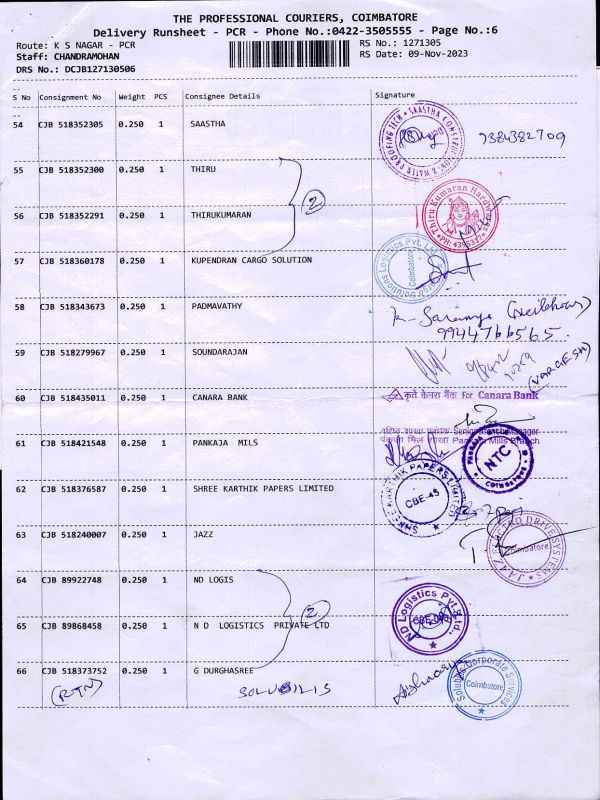 THE PROFESSIONAL COURIERS, COIMBATORE
Delivery Runsheet - PCR - Phone No.:0422-3505555 - Page No.:6
Route: K S NAGAR - PCR
RS No.: 1271305
Staff: CHANDRAMOHAN
RS Date: 09-Nov-2023
DRS No.: DCJB127130506
S No Consignment No Weight PCS Consignee Details Signature
54 CJB 518352305 0.250 1 SAASTHA 7384382709
55 CJB 518352300 0.250 1 THIRU
2
56 CJB 518352291 0.250 1 THIRUKUMARAN
Thiru Kumaran Hardwares
57 CJB 518360178 0.250 1 KUPENDRAN CARGO SOLUTION
Coimbatore
58 CJB 518343673 0.250 1 PADMAVATHY
9944766565
59 CJB 518279967 0.250 1 SOUNDARAJAN
60 CJB 518435011 0.250 1 CANARA BANK
for Canara Bank
61 CJB 518421548 0.250 1 PANKAJA MILS
NTC
COIMBATORE
62 CJB 518376587 0.250 1 SHREE KARTHIK PAPERS LIMITED
SHREE KARTHIK PAPERS LIMITED
CBE-45
63 CJB 518240007 0.250 1 JAZZ
Coimbatore
64 CJB 89922748 0.250 1 ND LOGIS
2
65 CJB 89868458 0.250 1 N D LOGISTICS PRIVATE LTD
ND Logistics Pvt. Ltd.,
66 CJB 518373752 0.250 1 G DURGHASREE
(RTN)
Solubilis Corporate Services
Coimbatore